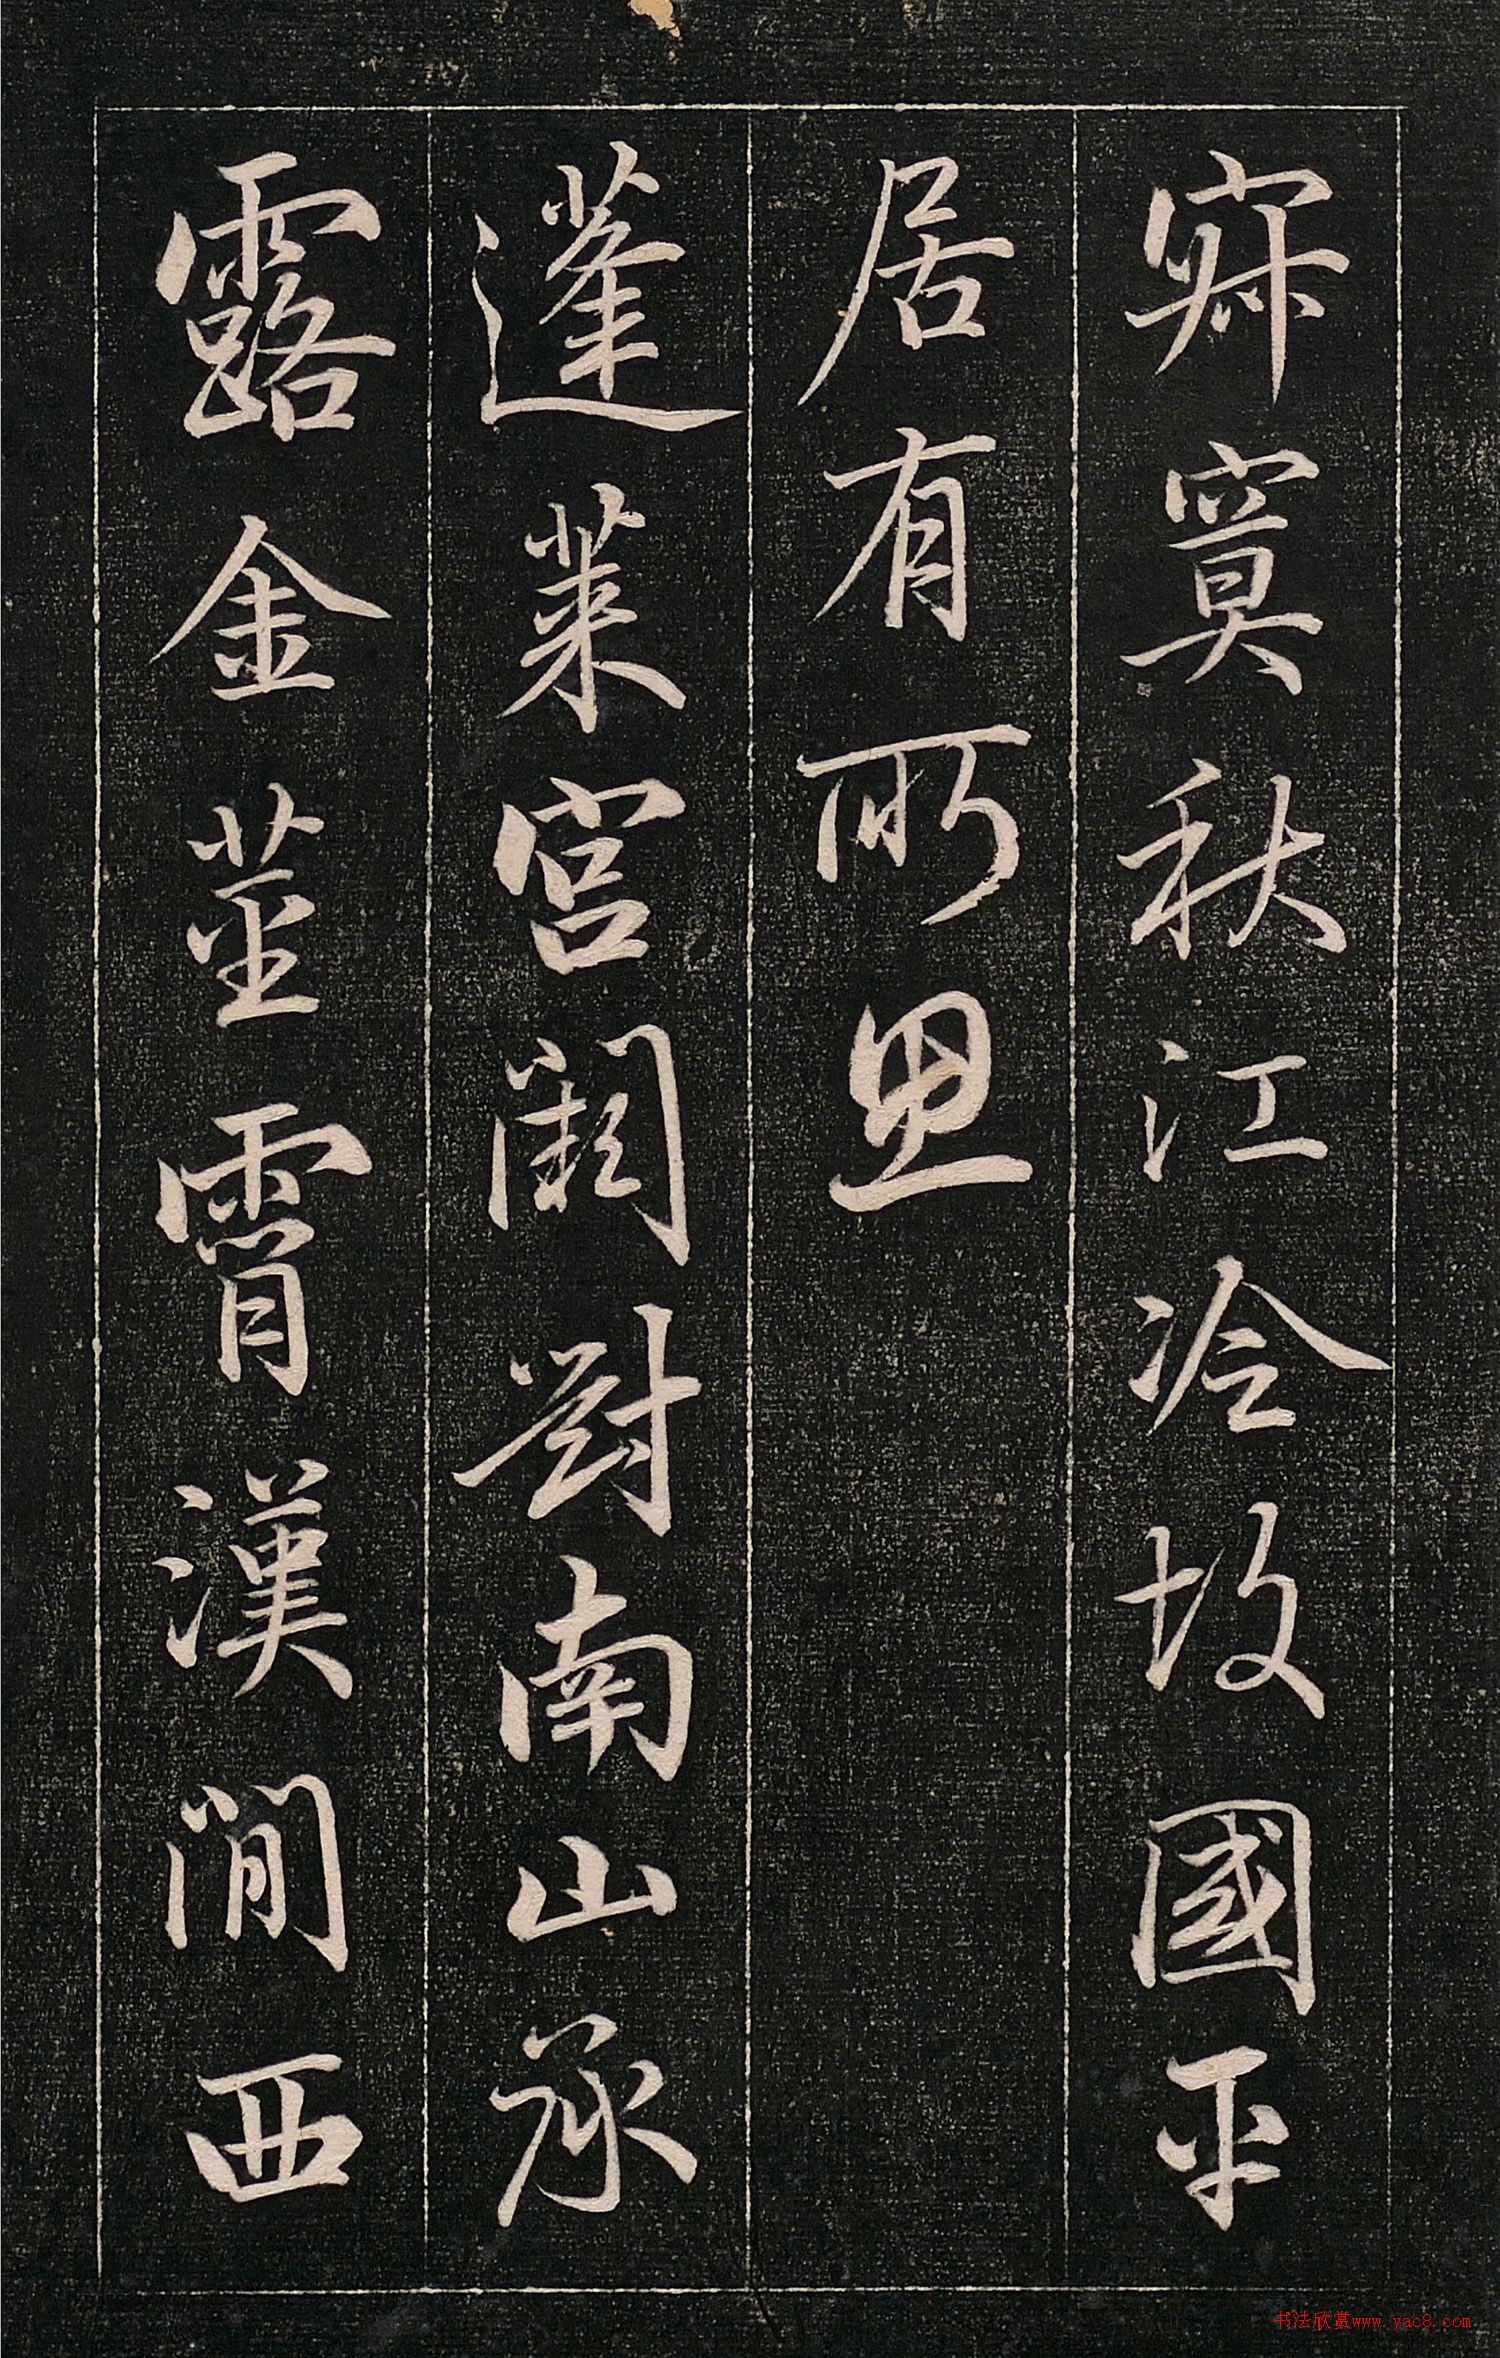 寂寞秋江冷故國平
居有所思
蓬萊宮闕對南山承
露金莖霄漢間西
书法欣赏www.yac8.com